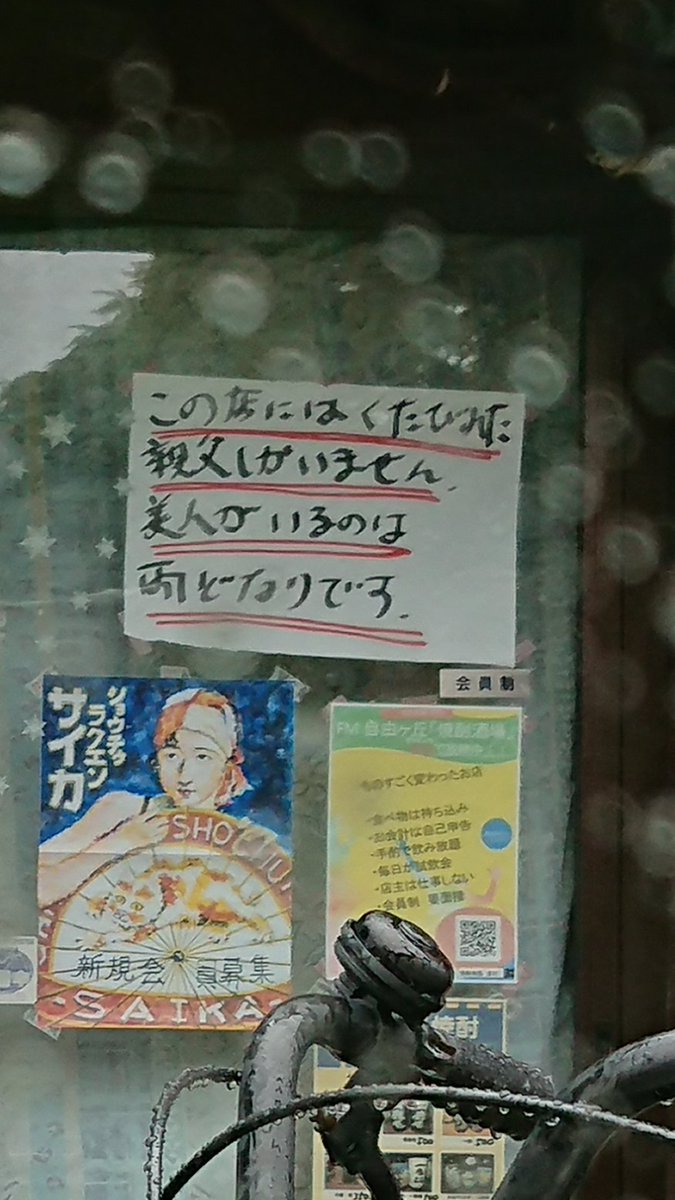 この店にはくたびれた
親父しかいません。
美人がいるのは
両どなりです。
会員制
ショウチュウ
ラクエン
サイカ
SHOCHU
新規会員募集
SAIKA
FM自由ヶ丘「焼酎酒場」
ものすごく変わったお店
・食べ物は持ち込み
・お会計は自己申告
・手酌で飲み放題
・毎日が試飲会
・店主は仕事しない
・会員制 要面接
焼酎